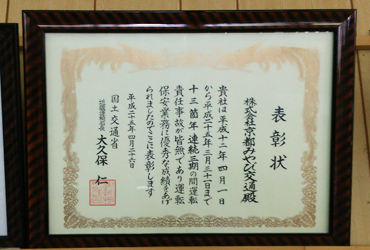 表彰状
株式会社京都みやび交通殿
貴社は平成十二年四月一日
から平成二十五年三月三十一日まで
十三箇年連続三期の間運転
責任事故が皆無であり運転
保安業務に優秀な成績をあげ
られましたのでここに表彰します
平成二十五年四月二十六日
国土交通省
大久保 仁